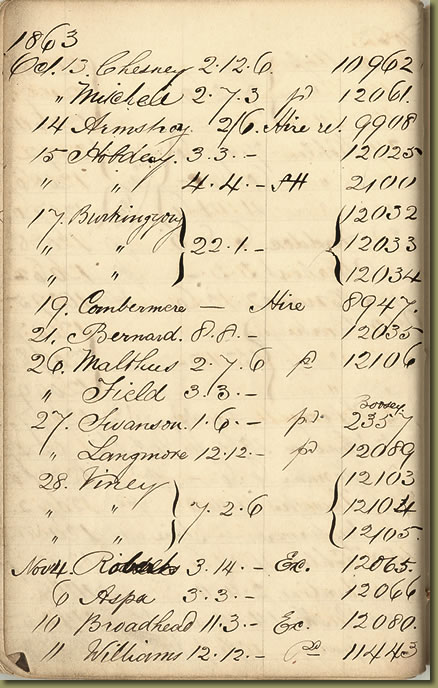 1863
Oct. 13. Chesney 2.12.6. 10962
" Mitchell 2.7.3 pd 12061.
14 Armstrong. 2/6. Hire ret. 9908
15 Hobday. 3.3.- 12025
" " 4.4.- SH 2100
17. 12032
" " 22.1.- 12033
" " 12034
19. Combermere — Hire 8947.
21. Bernard. 8.8.- 12035
26. Malthus 2.7.6 pd 12106
" Field 3.3.-
Boosey
27. Swanson. 1.6.- pd. 2357
" Langmore 12.12.- pd 12089
28. Viney 12103
" " 7.2.6 12104
" " 12105.
Nov 4. Roberts 3.14.- Ex. 12065.
6 Aspa 3.3.- 12066
10 Broadhead 11.3- Ex. 12080.
11 Williams 12.12.- pd 11443